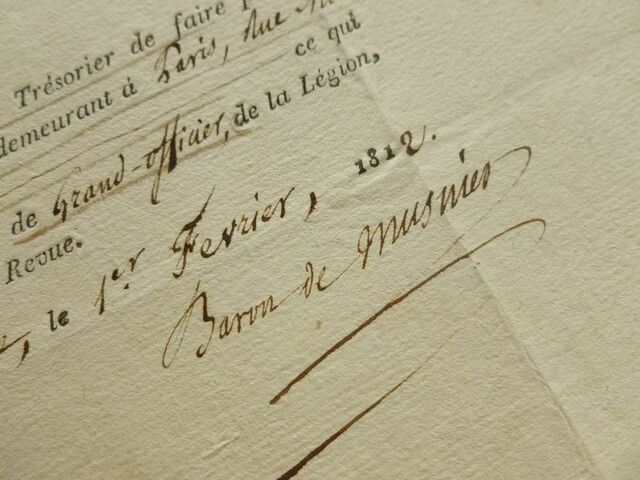 Trésorier de faire
demeurant à Paris, Rue
ce qui
de Grand-officier, de la Légion,
Revue.
, le 1er Fevrier, 1812.
Baron de Musnier